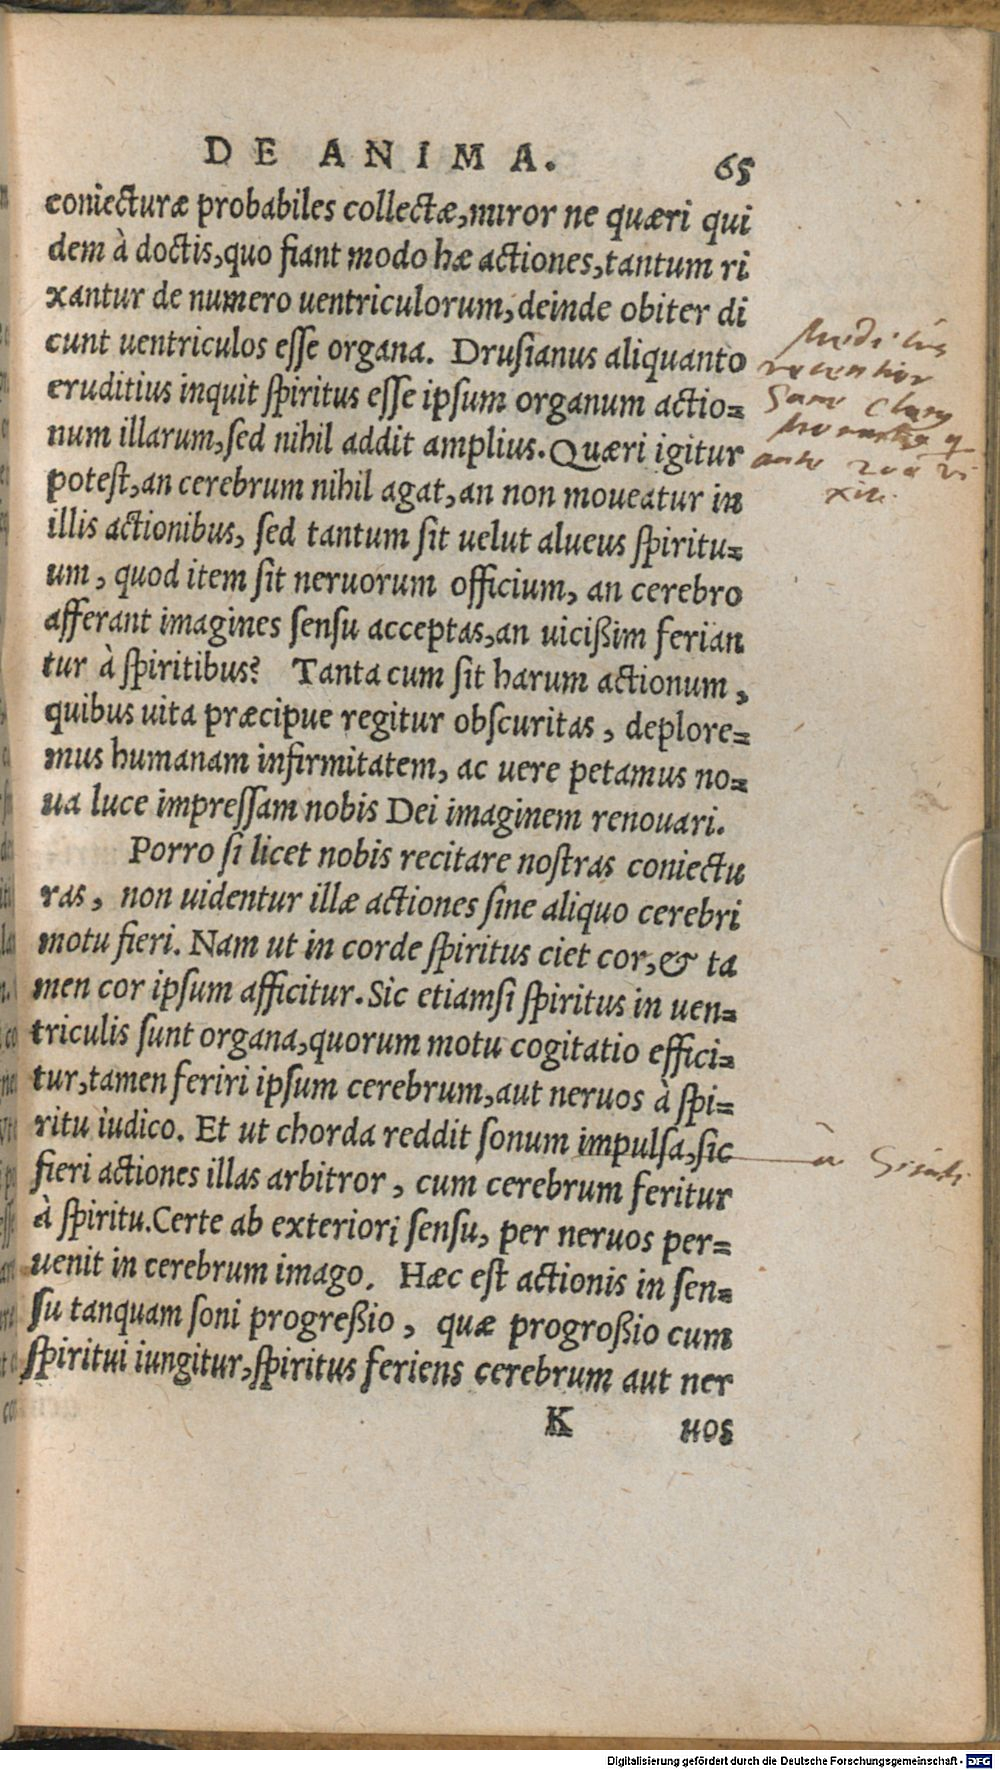 DE ANIMA. 65
coniecturæ probabiles collectæ, miror ne quæri qui
dem à doctis, quo fiant modo hæ actiones, tantum ri
xantur de numero uentriculorum, deinde obiter di
cunt uentriculos esse organa. Drusianus aliquanto
eruditius inquit spiritus esse ipsum organum actio=
num illarum, sed nihil addit amplius. Quæri igitur
potest, an cerebrum nihil agat, an non moueatur in
illis actionibus, sed tantum sit uelut alueus spiritu=
um, quod item sit neruorum officium, an cerebro
afferant imagines sensu acceptas, an uicißim ferian
tur à spiritibus? Tanta cum sit harum actionum,
quibus uita præcipue regitur obscuritas, deplore=
mus humanam infirmitatem, ac uere petamus no=
ua luce impressam nobis Dei imaginem renouari.
Porro si licet nobis recitare nostras coniectu
ras, non uidentur illæ actiones sine aliquo cerebri
motu fieri. Nam ut in corde spiritus ciet cor, & ta
men cor ipsum afficitur. Sic etiamsi spiritus in uen=
triculis sunt organa, quorum motu cogitatio effici=
tur, tamen feriri ipsum cerebrum, aut neruos à spi=
ritu iudico. Et ut chorda reddit sonum impulsa, sic
fieri actiones illas arbitror, cum cerebrum feritur
à spiritu. Certe ab exteriori sensu, per neruos per=
uenit in cerebrum imago. Hæc est actionis in sen=
su tanquam soni progreßio, quæ progroßio cum
spiritui iungitur, spiritus feriens cerebrum aut ner
K uos
Medicus
recentior
ante
xit.
Digitalisierung gefördert durch die Deutsche Forschungsgemeinschaft - DFG